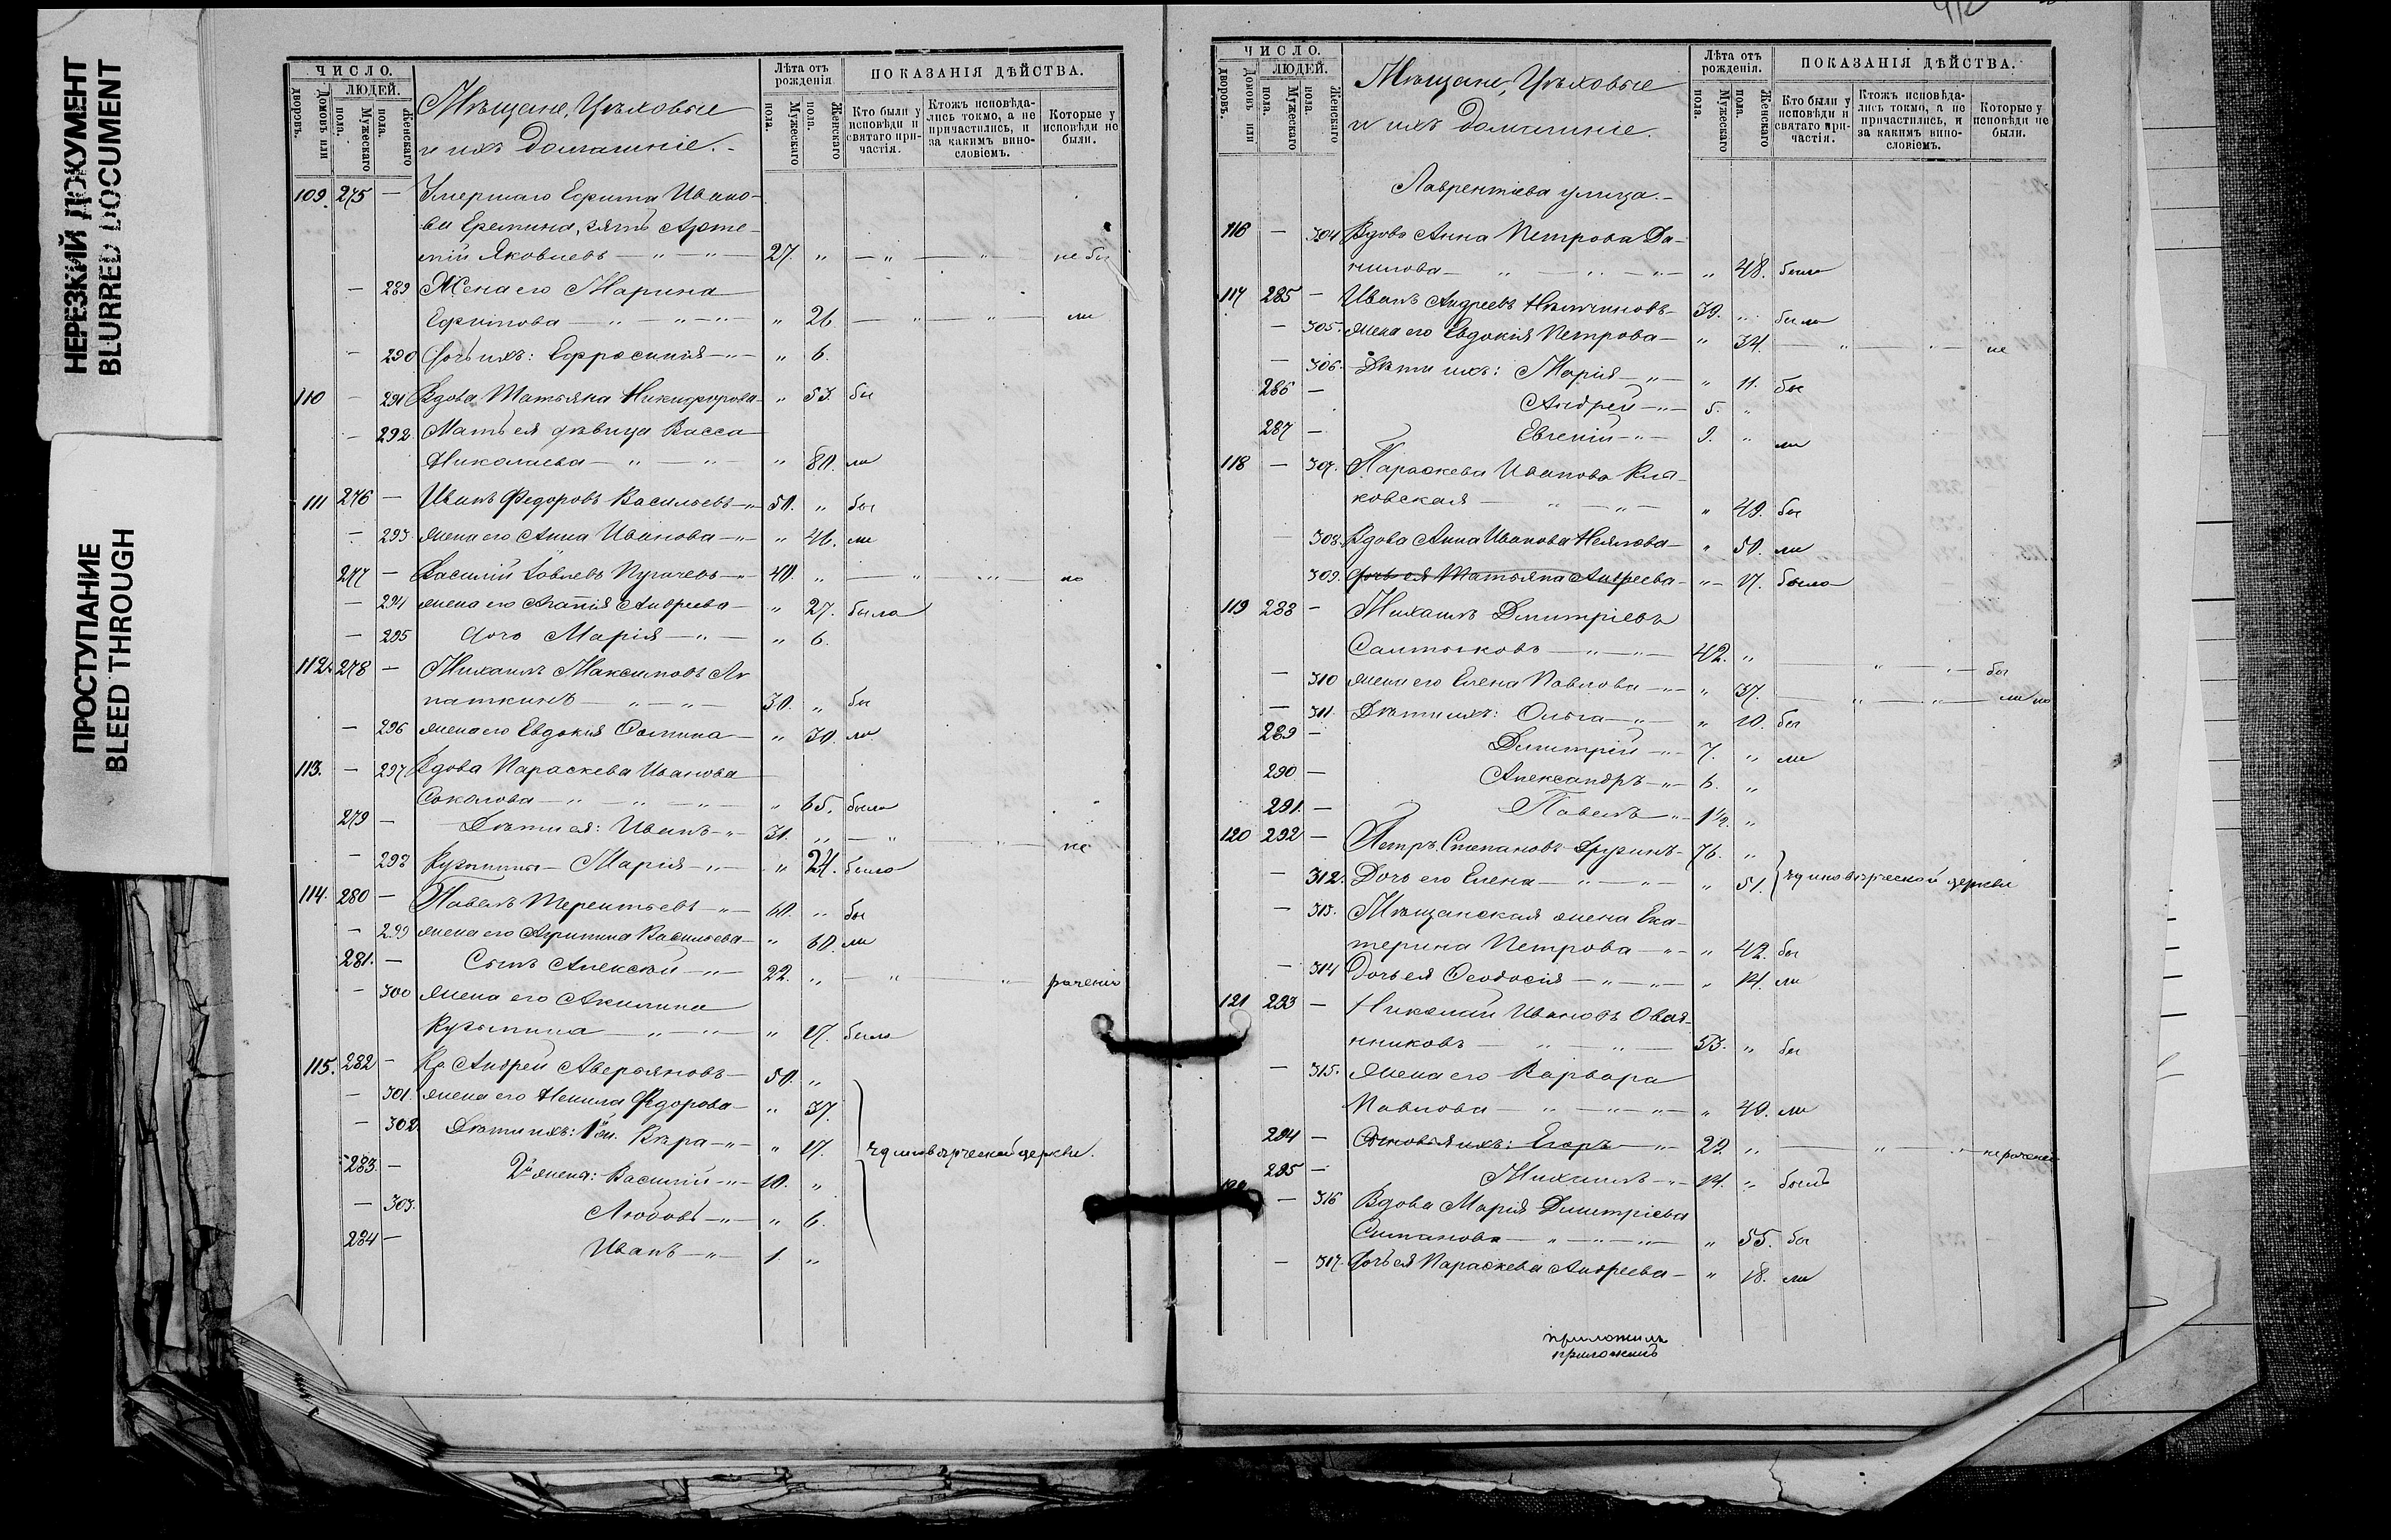 НЕРЕЗКИЙ ДОКУМЕНТ
BLURRED DOCUMENT
ПРОСТУПАНИЕ
BLEED THROUGH
ЧИСЛО.
ЛЮДЕЙ.
Домовъ или дворовъ.
Мужескаго пола.
Женскаго пола.
Мѣщане, Цѣховые
и ихъ домашніе.
Лѣта отъ рожденія
Мужескаго пола.
Женскаго пола.
ПОКАЗАНІЯ ДѢЙСТВА.
Кто были у исповѣди и святаго причастія.
Ктожъ исповѣдались токмо, а не причастились, и за какимъ винословіемъ.
Которые у исповѣди не были.
109. 275 — Умершаго Ефима Ивано-
ва Еремина, зять Арте-
мій Яковлевъ — " — " — 27. " — " — " — не бы
— 289 Жена его Марина
Ефимова — " — " — " 26 — " — " — ли
— 290 Дочь ихъ: Ефросинія — " — " 6.
110 — 291 Вдова Татьяна Никифорова — " 53. бы
— 292 Мать ея дѣвица Васса
Николаева — " — " " 80. ли
111 276 — Иванъ Федоровъ Васильевъ — " 50. " бы
— 293. жена его Анна Иванова — " — " 46. ли
277 — Василій Пугачевъ — " 40. " — " — " — не
— 294 жена его Агапія Андреева — " 27. была
— 295 дочь Марія — " — " 6.
112. 278 — Михаилъ Максимовъ Ла
паткинъ — " — " — 30. " бы
— 296 жена его Евдокія Фомина — " 30. ли
113. — 297 Вдова Параскева Иванова
Соколова — " — " — " — " 65. была
279 — Дѣти ея: Иванъ — " 31. " — " — " — не
— 298 Марія — " — " 24. была
114. 280 — Павелъ Терентьевъ — " — 60. " бы
— 299 жена его Агрипина Васильева — " 60. ли
281. — Сынъ Алексѣй — " — 22. " — " — " — раченію
— 300 жена его Акилина
Кузьмина — " — " — " 17. была
115. 282 — Кр. Андрей Аверьяновъ — 50. "
— 301. жена его Ненила Федорова — " 37.
— 302 Дѣти ихъ: 1й ж. Вѣра — " — " 17. Единовѣрческой церкви.
283. — 2й жена: Василій — " — 10. "
— 303. Любовь — " — " 6.
284 — Иванъ — " — 1. "
ЧИСЛО.
ЛЮДЕЙ.
Домовъ или дворовъ.
Мужескаго пола.
Женскаго пола.
Мѣщане, Цѣховые
и ихъ домашніе.
Лѣта отъ рожденія.
Мужескаго пола.
Женскаго пола.
ПОКАЗАНІЯ ДѢЙСТВА.
Кто были у исповѣди и святаго причастія.
Ктожъ исповѣдались токмо, а не причастились, и за какимъ винословіемъ.
Которые у исповѣди не были.
Лаврентіева улица.
116 — 304 Вдова Анна Петрова Да-
нилова — " — " — " — " 48. была
117 285 — Иванъ Андреевъ — 39. " были
— 305. жена его Евдокія Петрова — " 34. — " — " — не
— 306. Дѣти ихъ: Марія — " — " 11. бы
286 — Андрей — " — 5. "
287 — Евгеній — " — 9. " ли
118 — 307. Параскева Иванова
ковская — " — " — " 49. бы
— 308. Вдова Анна Иванова — " 50. ли
309. дочь ея Татьяна Андреева — " — 17. была
119 288 — Михаилъ Димитріевъ
Салтыковъ — " — " — 42. " — " — " — бы
— 310 жена его Елена Павлова — " — " 37. — " — " — ли не
— 311. Дѣти ихъ: Ольга — " — " 10. бы
289 — Димитрій — " — 7. " ли
290 — Александръ — " — 6. "
291. — Павелъ — " 1½. "
120 292 — Петръ Степановъ — 76. "
— 312. Дочь его Елена — " — " — " 51. } Единовѣрческой церкви
— 313. Мѣщанская жена Ека-
терина Петрова — " — " 42. бы
— 314 Дочь ея Феодосія — " — " — " 14. ли
121 293 — Николай Ивановъ Овся-
нниковъ — " — " — 53. " бы
— 315. жена его Варвара
Павлова — " — " — " — " 40. ли
294 — Сыновья ихъ: Егоръ — " — 22. " — " — " — нераченію
295 — Михаилъ — " — 14. " былъ
— 316 Вдова Марія Димитріева
— " — " — " — " 55. бы
— 317. дочь ея Параскева Андреева — " 18. ли